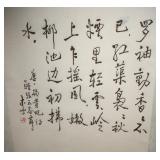 罗袖动香香不
已红蕖袅袅秋
烟里轻云岭
上乍摇风嫩
柳池边初拂
水